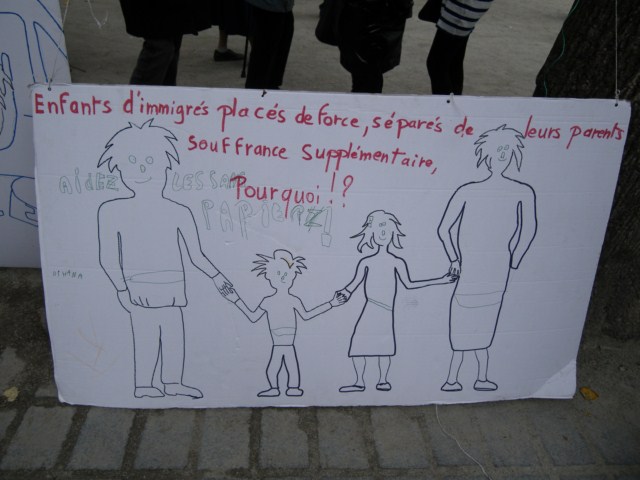 Enfants d'immigrés placés de force, séparés de leurs parents
souffrance supplémentaire,
Pourquoi !?
AIDEZ LES SANS
PAPIERZ!